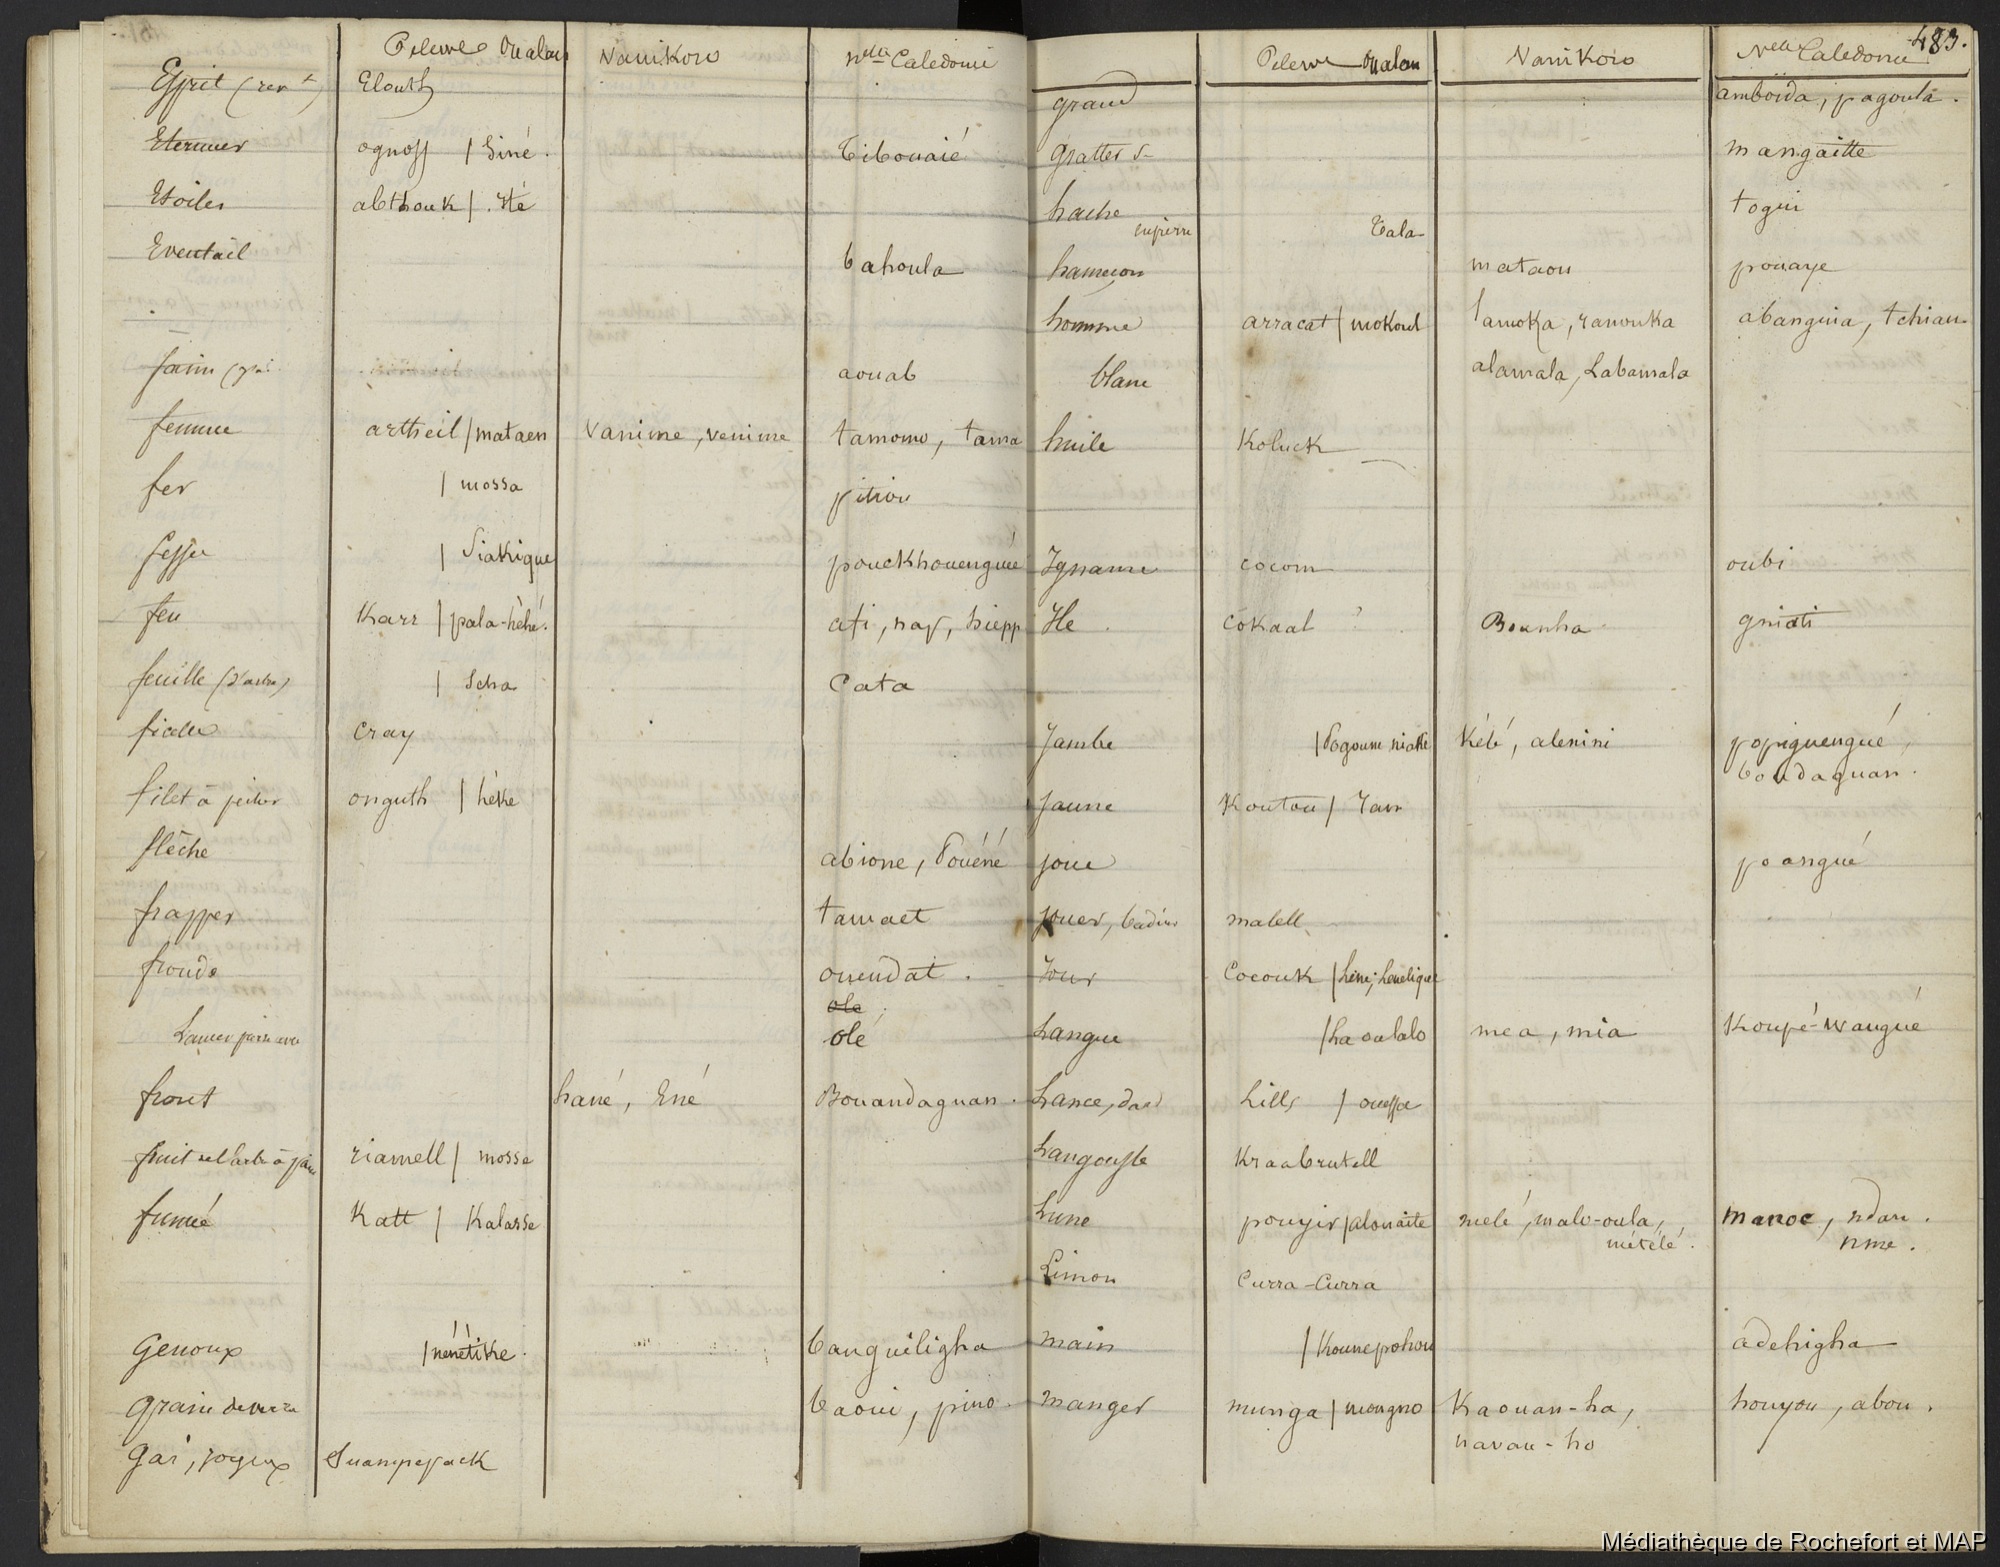 Pelewe Oualan Vanikoro Nlle Calédonie
Esprit (rev t) Elouth
Eternuer ognoss | Siné. Tibouaié
Etoiles abthouk | . Ité
Eventail bahoula
faim aouab
femme artheil | mataen Vanime, venime tamomo, tama
fer | mossa pitiou
fesse | Siakique pouckhouenguée
feu Karr | pala-héhé. afi, nap, hiepp
feuille (d'arbre) | Scha Cata
ficelle cray
filet à pêcher onguth | hèke
flèche abione, Pouéné
frapper tamaet
fronde ouendat.
ole
Lancer pierre avec olé
front hané, Ené Bouandaguan.
fruit de l'arbre à pain riamell | mosse
fumée Katt | Kalasse
Genoux | nénétike. banguiligha
Grain de verre baoui, pino.
Gai, joyeux Suampapack
483.
Pelewe Oualan Vanikoro Nlle Calédonie
grand amboïda, pagoula.
Gratter se mangaitte
hache togui
en pierre Tala
hameçon mataou pouaye
homme arracat | mokoul lamoka, ranouka abanguia, tchian
blanc alamala, Labamala
huile Koluck
Igname cocom oubi
Ile cokaal ? Bounha gniati
Jambe | Pogoune niake Kélé, alenini popiguengué,
boudaguan.
Jaune Koutou | Jaur
joue poangué
jouer, badiner malell
Jour Cocouk | léni, lenelique
Langue | Laoulalo mea, mia Koupé-wangué
Lance, dard Lills | ouessa
Langouste Kraabrutell
Lune pouyir | alouaite melé, malo-oula,
métélé. manoc, ndan.
nme.
Limon Curra-Curra
main | Kounepohou adehigha
manger munga | mongno Kaouan-ha, houyou, abou.
navan-ho
Médiathèque de Rochefort et MAP